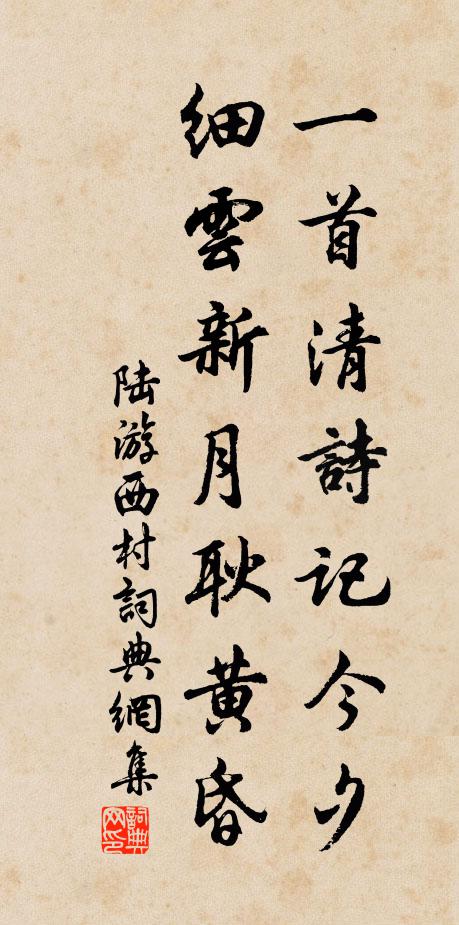 一首清詩記今夕
細雲新月耿黃昏
陆游西村詞典網集
詞典網印